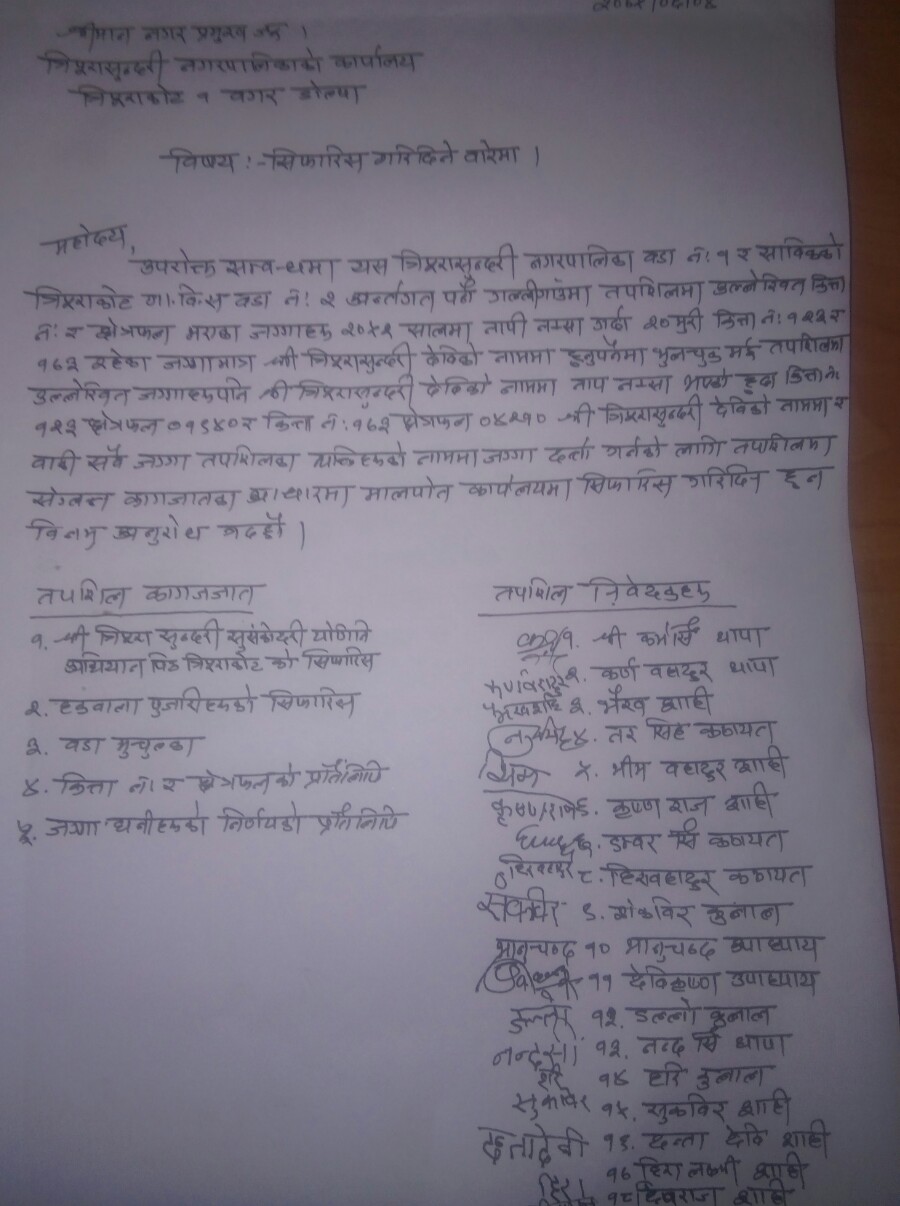 श्रीमान नगर प्रमुख ज्यू ।
त्रिपुरासुन्दरी नगरपालिकाको कार्यालय
त्रिपुराकोट १ वगर डोल्पा
विषय :- सिफारिस गरिदिने वारेमा ।
महोदय,
उपरोक्त सम्वन्धमा यस त्रिपुरासुन्दरी नगरपालिका वडा नं: १ र साविकको
त्रिपुराकोट गा.वि.स वडा नं: २ अर्न्तगत पर्ने गल्लीगाउँमा तपशिलमा उल्लेखित कित्ता
नं: र क्षेत्रफल भएका जग्गाहरु २०५२ सालमा नापी नक्सा गर्दा २० मुरी कित्ता नं: १२२ र
१६२ रहेका जग्गामात्र श्री त्रिपुरासुन्दरी देविको नाममा हुनुपर्नेमा भुलचुक भई तपशिलमा
उल्लेखित जग्गाहरुपनि श्री त्रिपुरासुन्दरी देविको नाममा नाप नक्सा भएको हुदा कित्ता नं:
१२२ क्षेत्रफल ०१९४० र कित्ता नं: १६२ क्षेत्रफल ०४२१० श्री त्रिपुरासुन्दरी देविको नाममा र
वाकी सवै जग्गा तपशिलका व्यक्तिहरुको नाममा जग्गा दर्ता गर्नको लागि तपशिलमा
संग्लग्न कागजातका आधारमा मालपोत कार्यलयमा सिफारिस गरिदिन हुन
विनम्र अनुरोध गर्दछौँ ।
तपशिल कागजजात
१. श्री त्रिपुरा सुन्दरी योगिनि
अभियान पिठ त्रिपुराकोट को सिफारिस
२. हकवाला पुजारीहरुको सिफारिस
३. वडा मुचुल्का
४. कित्ता नं: र क्षेत्रफलको प्रतिलिपि
५. जग्गा धनीहरुको निर्णयको प्रतिलिपि
तपशिल निवेदकहरु
१. श्री कर्मसिं थापा
कर्णवहादुर २. कर्ण वहादुर थापा
३. भैरव शाही
४. नर सिंह कठायत
५. भीम वहादुर शाही
कृष्णराज ६. कृष्ण राज शाही
७. डम्वर सिं कठायत
८. हिरावहादुर कठायत
९. शोकविर कुलाल
भानुचन्द १० भानुचन्द उपाध्याय
११ देविकृष्ण उपाध्याय
१२. डल्लो कुलाल
१३. नन्द सिं थापा
१४ हरि कुलाल
सुकविर १५. सुकविर शाही
दन्तादेवी १६. दन्ता देवि शाही
१७ हिरा लक्ष्मी शाही
१८ शाही